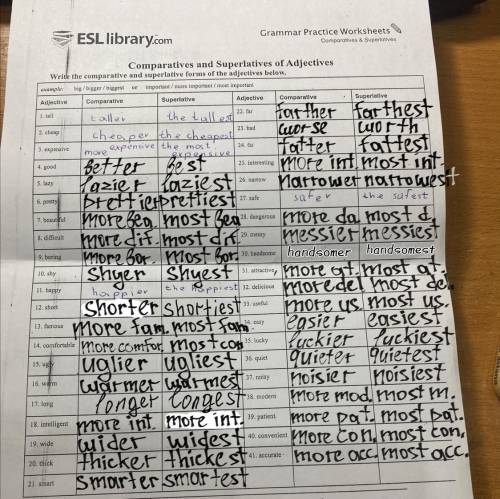 ESLlibrary.com
Grammar Practice Worksheets
Comparatives & Superlatives
Comparatives and Superlatives of Adjectives
Write the comparative and superlative forms of the adjectives below.
example: big / bigger / biggest or important / more important / most important
Adjective Comparative Superlative Adjective Comparative Superlative
1. tall taller the tallest 22. far farther farthest
2. cheap cheaper the cheapest 23. bad worse worth
3. expensive more expensive the most expensive 24. fat fatter fattest
4. good better best 25. interesting more int. most int.
5. lazy lazier laziest 26. narrow narrower narrowest
6. pretty prettier prettiest 27. safe safer the safest
7. beautiful more bea. most bea 28. dangerous more da. most d.
8. difficult more dif. most dif. 29. messy messier messiest
9. boring more bor. most bor. 30. handsome handsomer handsomest
10. shy shyer shyest 31. attractive more at. most at.
11. happy happier the happiest 32. delicious more del most de.
12. short shorter shortiest 33. useful more us. most us.
13. famous more fam. most fam. 34. easy easier easiest
14. comfortable more comfor. most com 35. lucky luckier luckiest
15. ugly uglier ugliest 36. quiet quieter quietest
16. warm warmer warmest 37. noisy noisier noisiest
17. long longer longest 38. modern more mod. most m.
18. intelligent more int. more int. 39. patient more pat. most pat.
19. wide wider widest 40. convenient more con. most con.
20. thick thicker thickest 41. accurate more acc. most acc.
21. smart smarter smartest